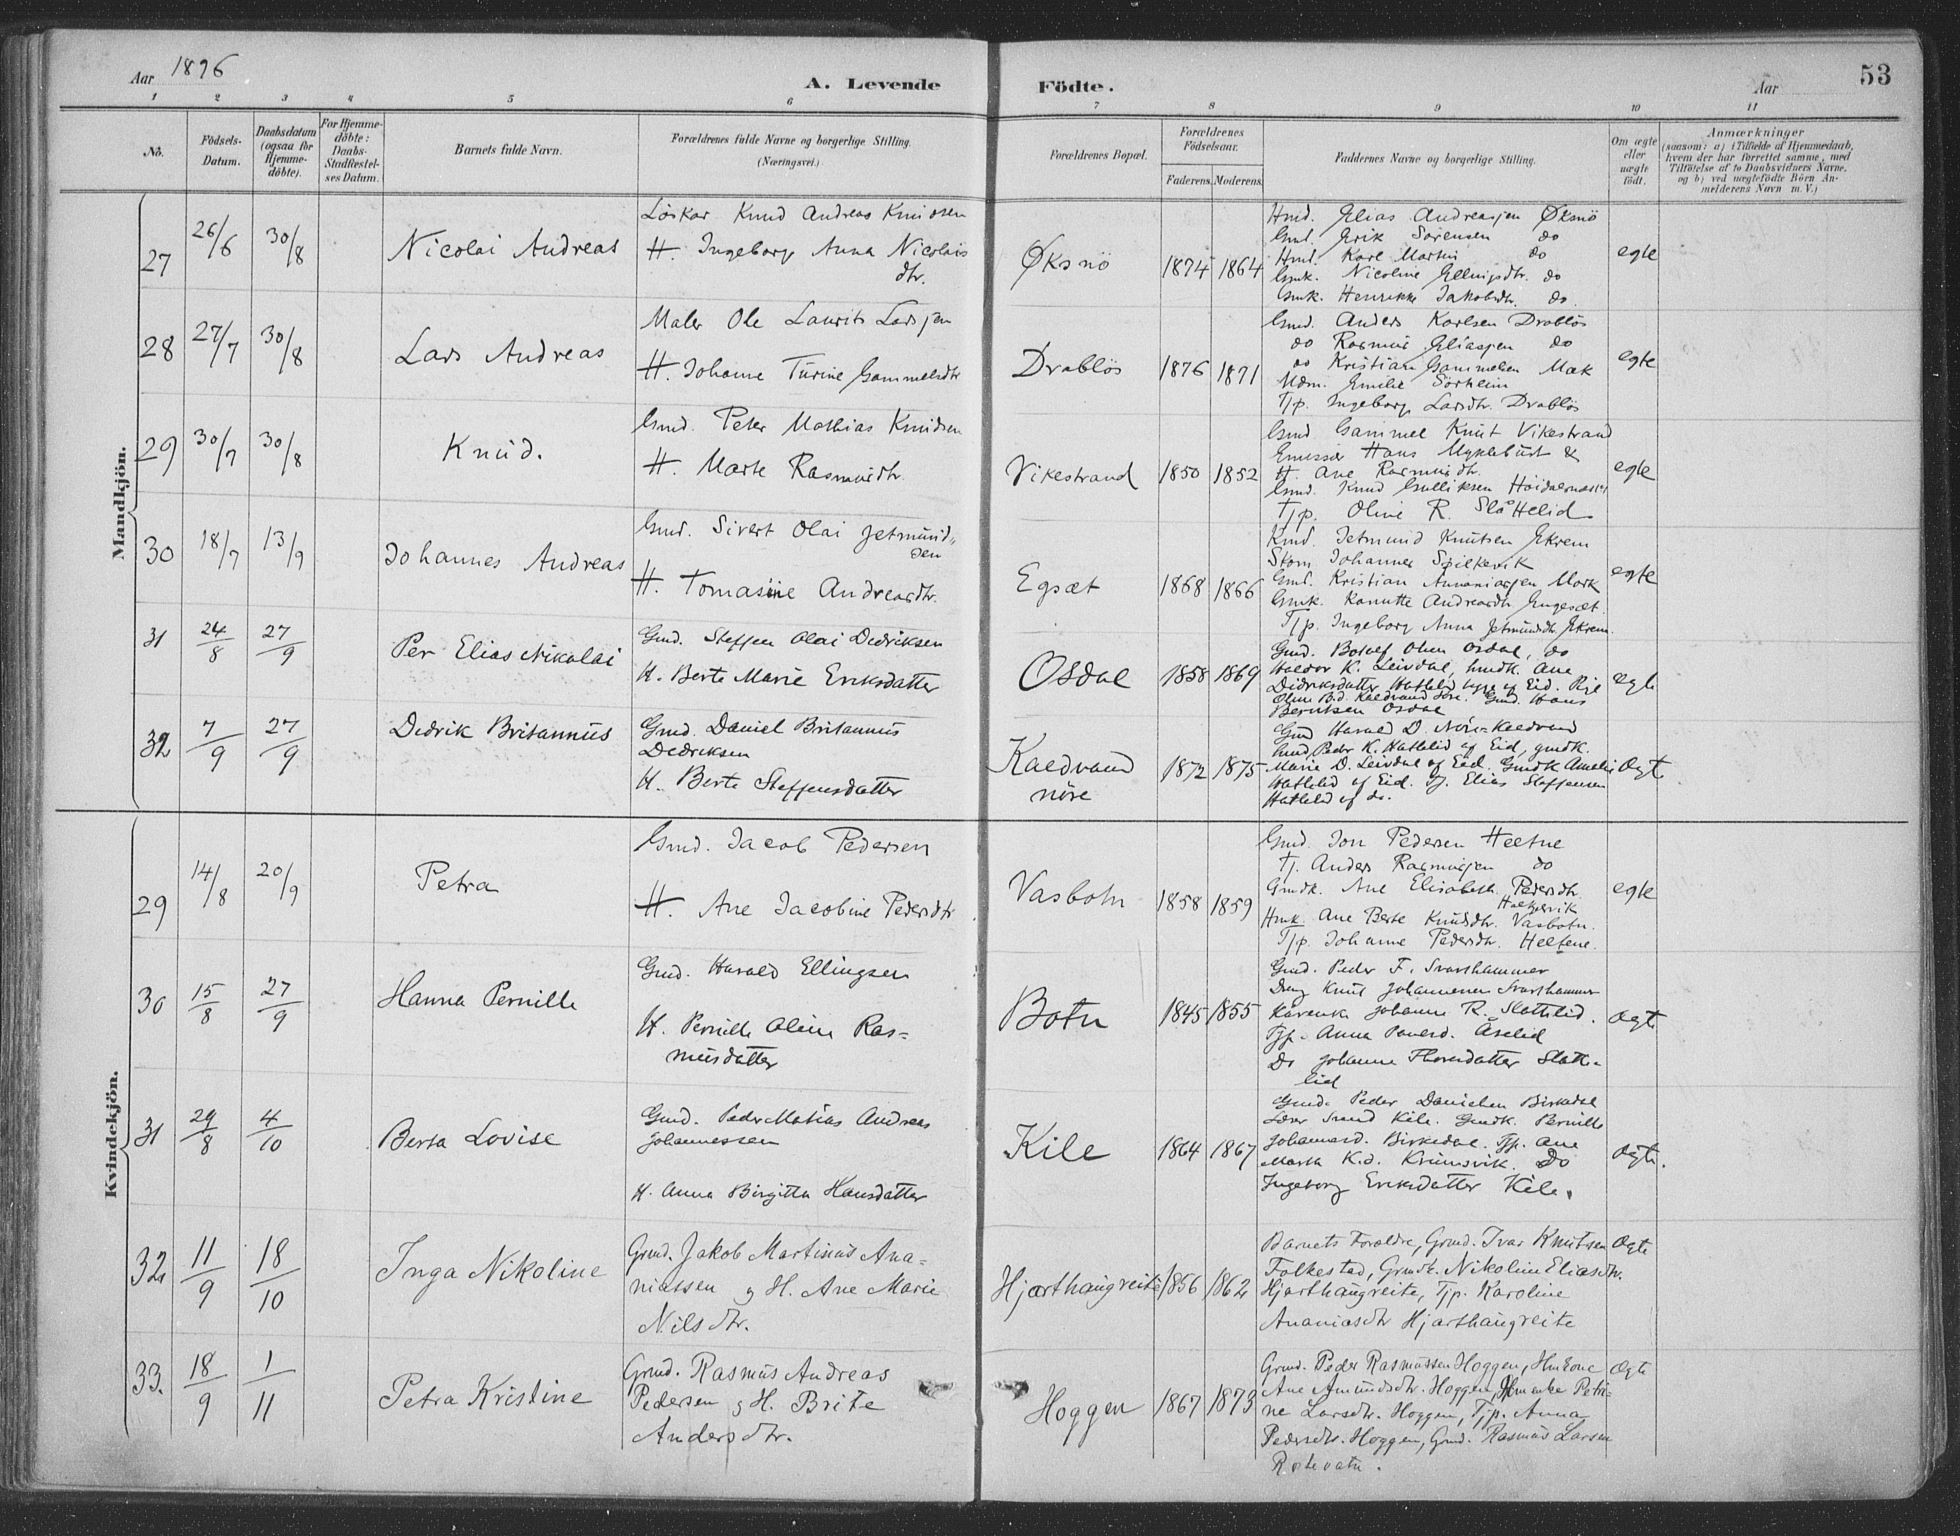 Aar 1896
A. Levende
Födte.
Aar
53
1 2 3 4 5 6 7 8 9 10 11
No.
Födsels-
Datum.
Daabsdatum
(ogsaa for
Hjemme-
döbte).
For Hjemme-
döbte:
Daabs-
Stadfæstel-
ses Datum.
Barnets fulde Navn.
Forældrenes fulde Navne og borgerlige Stilling.
(Næringsvei.)
Forældrenes Bopæl.
Forældrenes
Födselsaar.
Faderens. Moderens.
Faddernes Navne og borgerlige Stilling.
Om ægte
eller
uægte
födt.
Anmærkninger
(saasom: a) i Tilfælde af Hjemmedaab,
hvem der har forrettet samme, med
Tilföielse af to Daabsvidners Navne,
og b) ved uægtefödte Börn An-
melderens Navn m. V.)
Mandkjön.
27 26/6 30/8 Nicolai Andreas
Löskar Knud Andreas Knudsen
H. Ingeborg Anna Nicolais
dtr.
Øksnö 1874 1864
Hmd. Elias Andreasjen Øksnö
Gmd. Erik Sörensen do
Hmd. Karl Martin do
Gmk. Nicoline Ellingsdtr. do
Gmk. Henrikke Jakobsdtr. do.
egte
28 27/7 30/8 Lars Andreas
Maler Ole Laurits Larsjen
H. Johanne Turine Gammelsdtr
Drablös 1876 1871
Gmd. Anders Karlsen Drablös
do Rasmus Eliasjen do
do Kristian Gammelsen Mæk
Mdm. Emilie Sörheim
Tjp. Ingeborg Larsdtr. Drablös
egte
29 30/7 30/8 Knud.
Gmd. Peter Mathias Knudsen
H. Marte Rasmusdtr.
Vikestrand 1850 1852
Gmd Gammel Knut Vikestrand
Emissær Hans Myklebust &
H. Ane Rasmusdtr.
Gmd. Knud Gulliksen
Tjp. Oline R. Slåttelid
egte
30 18/7 13/9 Johannes Andreas
Gmd. Sivert Olai Jetmund-
sen
H. Tomasine Andreasdtr.
Egsæt 1868 1866
Kmd. Jetmund Knutsen Ekrem
Skom Johannes
Gmd. Kristian Ananiasjen Mork
Gmk. Kanutte Andreasdtr Engeset
Tjp. Ingeborg Anna Jetmundsdtr. Ekrem.
egte
31 24/8 27/9 Per Elias Nikolai
Gmd. Steffen Olai Dedriksen
H. Berte Marie Eriksdatter
Osdal 1858 1869
Gmd. Botolf Olsen Osdal, do
Haldor K. Leivdal, hmdk. Ane
Didriksdatter Hatlelid begge af Eid. Pige
Oline B.d. Kaldvand Søre. Gmd. Hans
Berntsen Osdal
egte
32 7/9 27/9 Dedrik Britannus
Gmd. Daniel Britannus
Dedriksen
H. Berte Steffensdatter
Kaldvand
nöre
1872 1875
Gmd Harald D. Nöre-Kaldvand
hmd Peder K. Hatlelid af Eid, gmdk.
Marie D. Leivdal af Eid. Gmdk Amalie
Hatlelid af Eid. Tj. Elias Steffensen
Hatlelid af do.
Ægte
Kvindekjön.
29 14/8 20/9 Petra
Gmd. Jacob Pedersen
H. Ane Jacobine Pedersdtr
Vasbotn 1858 1859
Gmd. Jon Pedersen Heltne
Tj. Anders Rasmusjen do
Gmdk. Ane Elisabeth Pedersdtr
Hmk. Ane Berte Knudsdtr. Vasbotn.
Tjp. Johanne Pedersdtr. Heltne.
egte
30 15/8 27/9 Hanna Pernille
Gmd. Harald Ellingsen
H. Pernille Oline Ras-
musdatter
Botn 1845 1855
Gmd. Peder F. Svarthammer
Dreng Knut Johannesen Svarthammer
Kårenke Johanne R. Slottelid.
Tjp. Anna Poulsd. Åselid
Do Johanne Thoresdatter Slotte-
lid
Ægte
31 29/8 4/10 Berta Lovise
Gmd. Peder Matias Andreas
Johannessen
H. Anna Birgitta Hansdatter
Kile 1864 1867
Gmd. Peder Danielsen Birkedal
Lærer Svend Kile. Gmdk. Pernille
Johannesd. Birkedal. Tjp. Ane
Marta K.d. Krumsvik. Do
Ingeborg Eriksdatter Kile.
Ægte.
32 11/9 18/10 Inga Nikoline
Grmd. Jakob Martinus Ana-
niassen og H. Ane Marie
Nilsdtr.
Hjarthaugreite 1856 1862
Barnets Forældre, Grmd. Ivar Knutsen
Folkestad, Grmdk. Nikoline Eliasdtr.
Hjarthaugreite, Tjp. Karoline
Ananiasdtr Hjarthaugreite
Ægte
33. 18/9 1/11 Petra Kristine
Grmd. Rasmus Andreas
Pedersen og H. Brite
Andersdtr.
Hoggen 1867 1873
Grmd. Peder Rasmussen Hoggen, Hmkone
Ane Amundsdtr. Hoggen, Hmenke Petri-
ne Larsdtr. Hoggen, Tjp. Anna
Pedersdtr. Hoggen, Grmd. Rasmus Larsen
Rotevatn.
Ægte